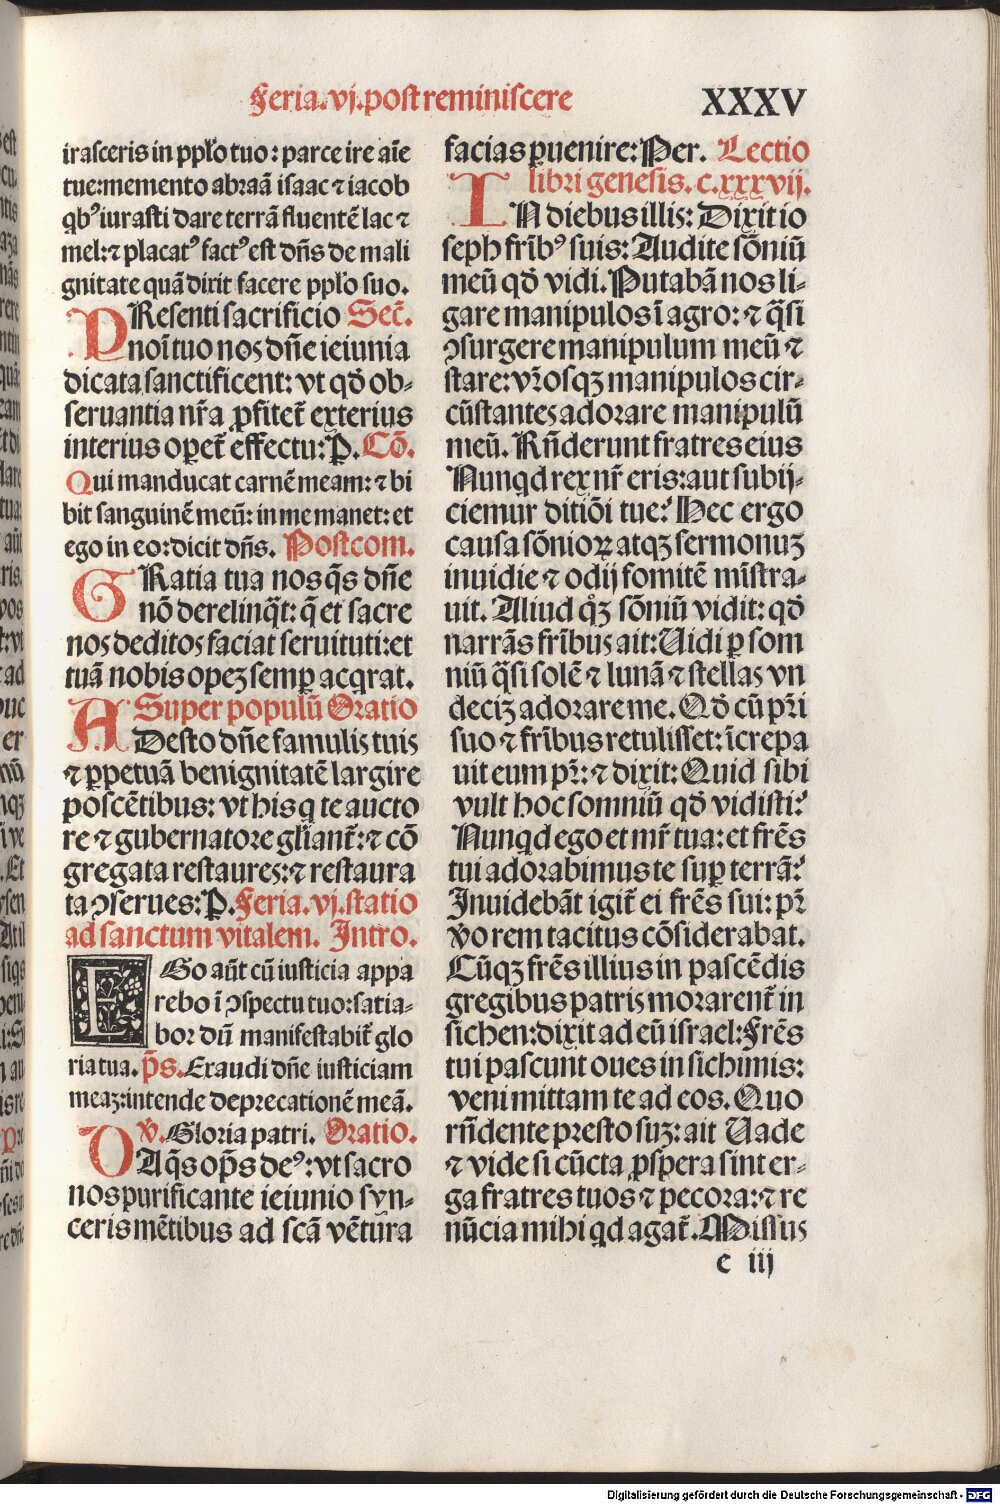 Feria.vj.post reminiscere
XXXV
irasceris in pplo tuo: parce ire aīe
tue: memento abraā isaac ⁊ iacob
qb⁹ iurasti dare terrā fluentē lac ⁊
mel: ⁊ placat⁹ fact⁹ est dn̄s de mali
gnitate quā dixit facere pplo suo.
PResenti sacrificio Sec̄.
noī tuo nos dn̄e ieiunia
dicata sanctificent: vt qd̄ ob-
seruantia nr̄a ꝓfitet̄ exterius
interius oꝑet̄ effectu: P. Cō.
Qui manducat carnē meam: ⁊ bi
bit sanguinē meū: in me manet: et
ego in eo: dicit dn̄s. Postcom.
GRatia tua nos q̄s dn̄e
nō derelinq̄t: q̄ et sacre
nos deditos faciat seruituti: et
tuā nobis opeꝫ semꝑ acqrat.
Super populū Oratio
ADesto dn̄e famulis tuis
⁊ ꝑpetuā benignitatē largire
poscētibus: vt his q te aucto
re ⁊ gubernatore gl̄iant̄: ⁊ cō
gregata restaures: ⁊ restaura
ta ꝯserues: P. Feria.vj.statio
ad sanctum vitalem. Intro.
EGo aūt cū iusticia appa
rebo ī ꝯspectu tuo: satia-
bor dū manifestabit̄ glo
ria tua. p̄s. Exaudi dn̄e iusticiam
meaꝫ: intende deprecationē meā.
V̄. Gloria patri. Oratio.
DAq̄s op̄s de⁹: vt sacro
nos purificante ieiunio syn-
ceris mētibus ad scā vētura
facias ꝑuenire: Per. Lectio
libri genesis. c.xxxvij.
IN diebus illis: Dixit io
seph fr̄ib⁹ suis: Audite sōniū
meū qd̄ vidi. Putabā nos li-
gare manipulos ī agro: ⁊ q̄si
ꝯsurgere manipulum meū ⁊
stare: vr̄osqꝫ manipulos cir-
cūstantes adorare manipulū
meū. Rn̄derunt fratres eius
Nunqd rex nr̄ eris: aut subij-
ciemur ditiōi tue? Hec ergo
causa sōnioꝝ atqꝫ sermonuꝫ
inuidie ⁊ odij fomitē mīstra-
uit. Aliud qꝫ̄ sōniū vidit: qd̄
narrās fr̄ibus ait: Uidi ꝑ som
niū q̄si solē ⁊ lunā ⁊ stellas vn
deciꝫ adorare me. Qd̄ cū pr̄i
suo ⁊ fr̄ibus retulisset: īcrepa
uit eum pr̄: ⁊ dixit: Quid sibi
vult hoc somniū qd̄ vidisti?
Nunqd ego et mr̄ tua: et fr̄es
tui adorabimus te suꝑ terrā?
Inuidebāt igit̄ ei fr̄es sui: pr̄
v̄o rem tacitus cōsiderabat.
Cūqꝫ fr̄es illius in pascēdis
gregibus patris morarent̄ in
sichen: dixit ad eū israel: Fr̄es
tui pascunt oues in sichimis:
veni mittam te ad eos. Quo
rn̄dente presto suꝫ: ait Uade
⁊ vide si cūcta ꝓspera sint er-
ga fratres tuos ⁊ pecora: ⁊ re
nūcia mihi qd agat̄. Missus
c iij
Digitalisierung gefördert durch die Deutsche Forschungsgemeinschaft - DFG